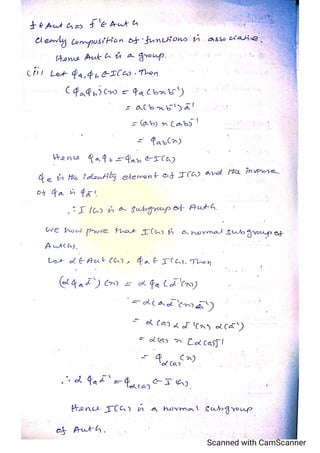 f ∈ Aut G ⇒ f⁻¹ ∈ Aut G
Clearly composition of functions is associative.
Hence Aut G is a group.
(ii) Let φa, φb ∈ I(G). Then
(φaφb)(x) = φa(bxb⁻¹)
= a(bxb⁻¹)a⁻¹
= (ab)x(ab)⁻¹
= φab(x)
Hence φaφb = φab ∈ I(G)
φe is the identity element of I(G) and the inverse
of φa is φa⁻¹.
∴ I(G) is a subgroup of Aut G.
We now prove that I(G) is a normal subgroup of
Aut(G).
Let α ∈ Aut(G), φa ∈ I(G). Then
(αφaα⁻¹)(x) = αφa(α⁻¹(x))
= α(aα⁻¹(x)a⁻¹)
= α(a)αα⁻¹(x)α(a⁻¹)
= α(a)x[α(a)]⁻¹
= φα(a)(x)
∴ αφaα⁻¹ = φα(a) ∈ I(G)
Hence I(G) is a normal subgroup
of Aut G.
Scanned with CamScanner